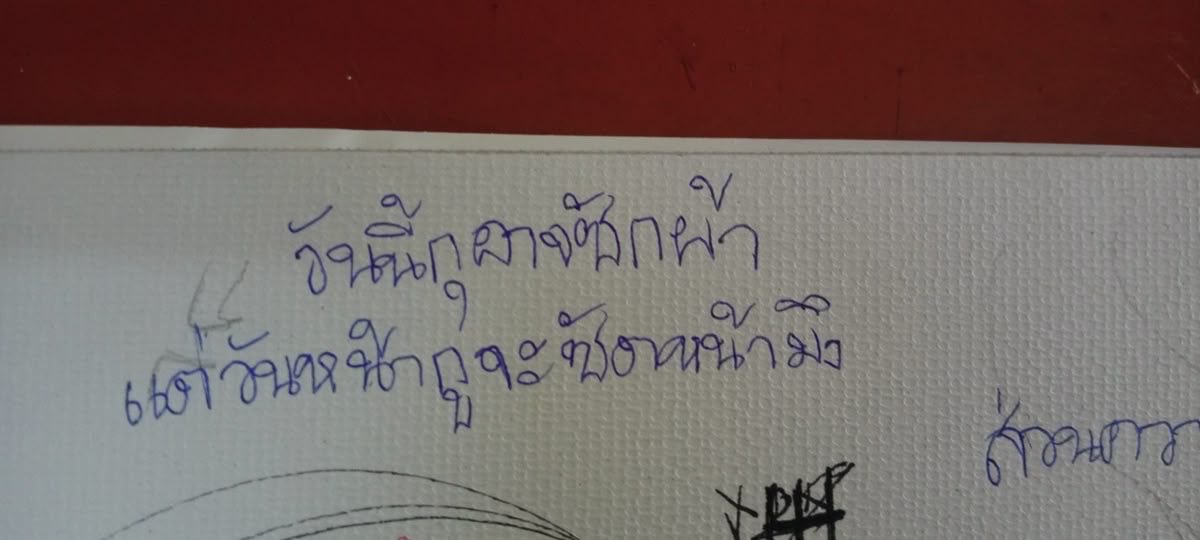 วันนี้กุอาจซักผ้า
แต่วันหน้ากูจะซัดหน้ามึง
ส่วน